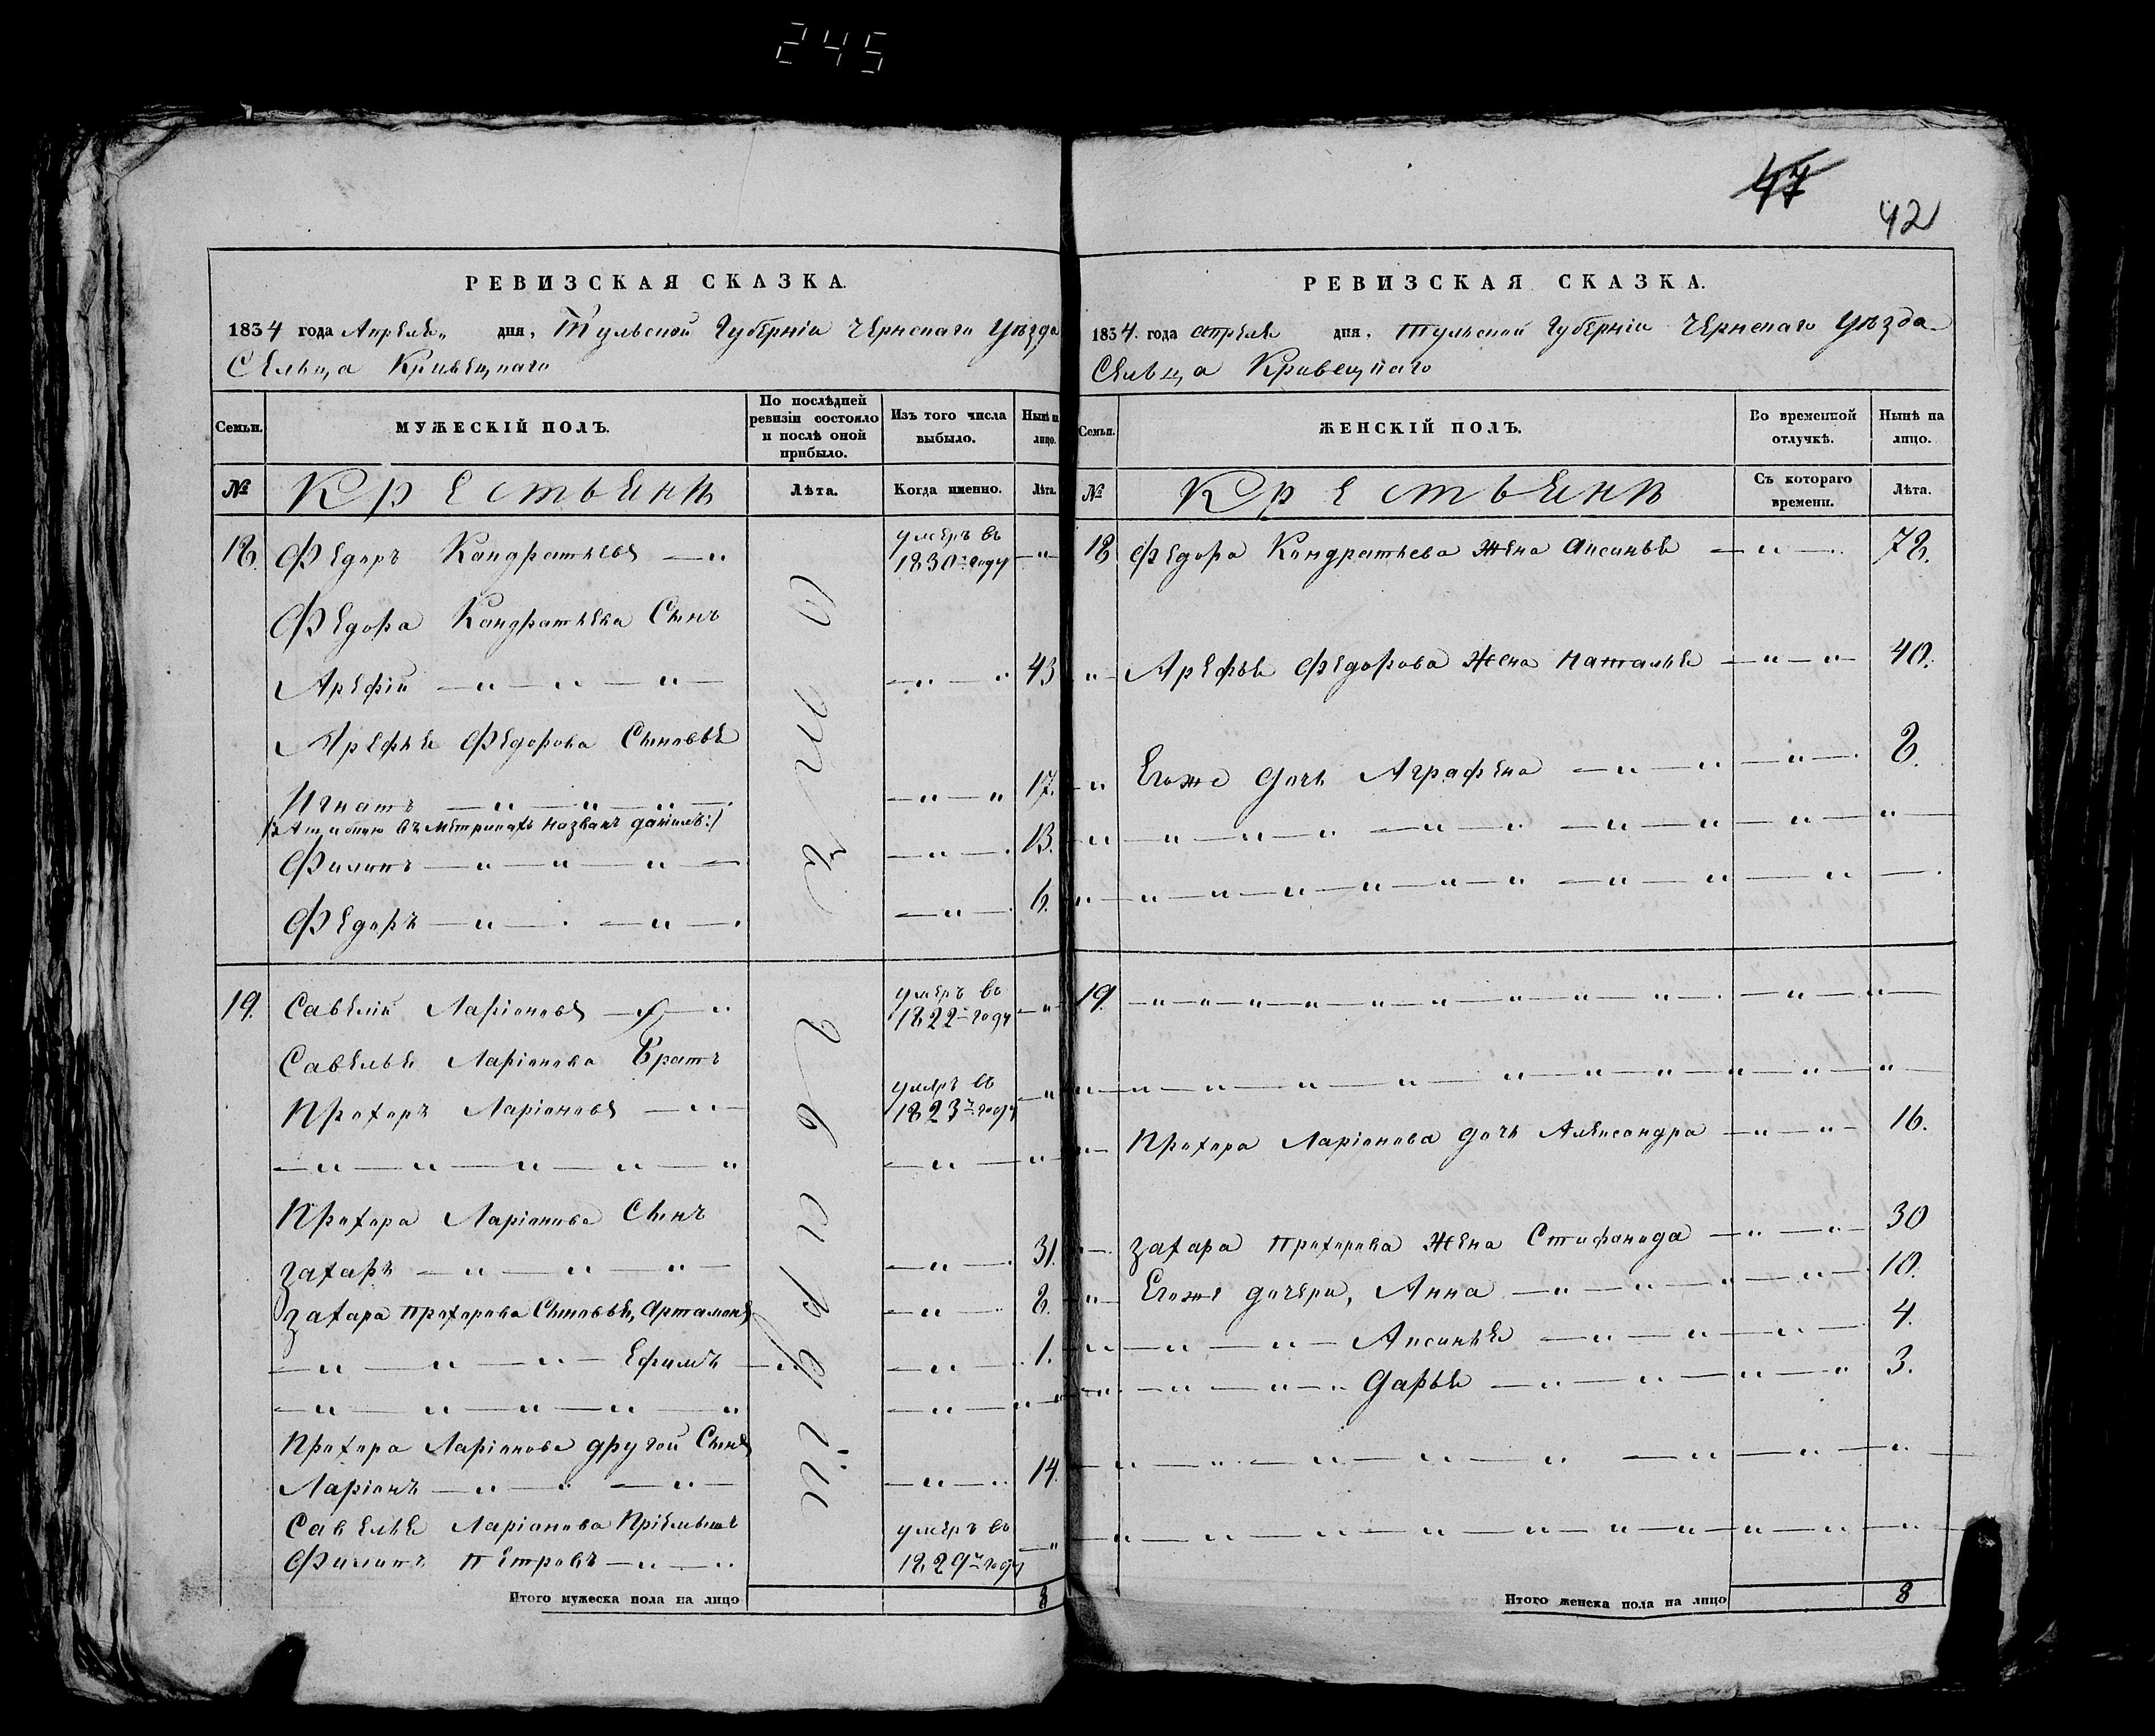 245
47
42
РЕВИЗСКАЯ СКАЗКА.
1834 года Апреля „ дня, Тульской Губерніи Чернскаго Уезда
Сельца Кривецкаго
Семьи.
МУЖЕСКІЙ ПОЛЪ.
По послѣдней ревизіи состояло и послѣ оной прибыло.
Изъ того числа выбыло.
Нынѣ на лицо.
№
Крестьянъ
Лѣта.
Когда именно.
Лѣта.
18. Федоръ Кондратьевъ — „ умеръ въ 1830 году — „
Федора Кондратьева Сынъ
Арефій — „ — „ — „ — 43
Арефья Федорова Сыновья
Игнатъ — „ — „ — „ — 17.
Филипъ — „ — „ — „ — 13.
Федоръ — „ — . — „ — . 6.
19. Савелій Ларіоновъ — „ умеръ въ 1822 году — „
Савелья Ларіонова Братъ
Прохоръ Ларіоновъ — „ — умеръ въ 1823 году — „
— „ — „ — „ — „ — „
Прохора Ларіонова Сынъ
Захаръ — „ — „ — „ — 31.
Захара Прохорова Сыновья, Артамонъ — „ — 8.
— „ — „ — „ — Ефимъ — „ — 1.
— „ — „ — „ — „ — „
Прохора Ларіонова другой Сынъ
Ларіонъ — „ — . — „ — 14.
Савелья Ларіонова Пріемышъ
Филипъ Петровъ — „ — „ умеръ въ 1829 году — „
Итого мужеска пола на лицо 8
РЕВИЗСКАЯ СКАЗКА.
1834. года Апреля дня, Тульской Губерніи Чернскаго Уезда
Сельца Кривецкаго
Семьи.
ЖЕНСКІЙ ПОЛЪ.
Во временной отлучкѣ.
Нынѣ на лицо.
№
Крестьянъ
Съ котораго времени.
Лѣта.
18 Федора Кондратьева Жена Аксинья — „ — . 78.
„ Арефья Федорова Жена Наталья — „ — „ — 40.
„ Егоже дочь Аграфена — „ — „ — „ — . 8.
„ — „ — „ — „ — „ — „ — „ — „
„ — „ — „ — „ — „ — „ — „ — .
19. — „ — „ — „ — „ — „ — „ — „
„ — „ — „ — „ — „ — „ — „ — „
„ Прохора Ларіонова дочь Александра — „ — „ — 16.
„ Захара Прохорова Жена Стифанида — „ — „ — 30
„ Егоже дочери, Анна — „ — „ — „ — 10.
„ — „ — „ — Аксинья — „ — „ — „ — 4.
„ — „ — „ — Дарья — „ — „ — „ — „ 3.
— „ — „ — „ — „ — „ — „ — „ — „ —
— „ — „ — „ — „ — „ — „ — „ — „ —
Итого женска пола на лицо 8